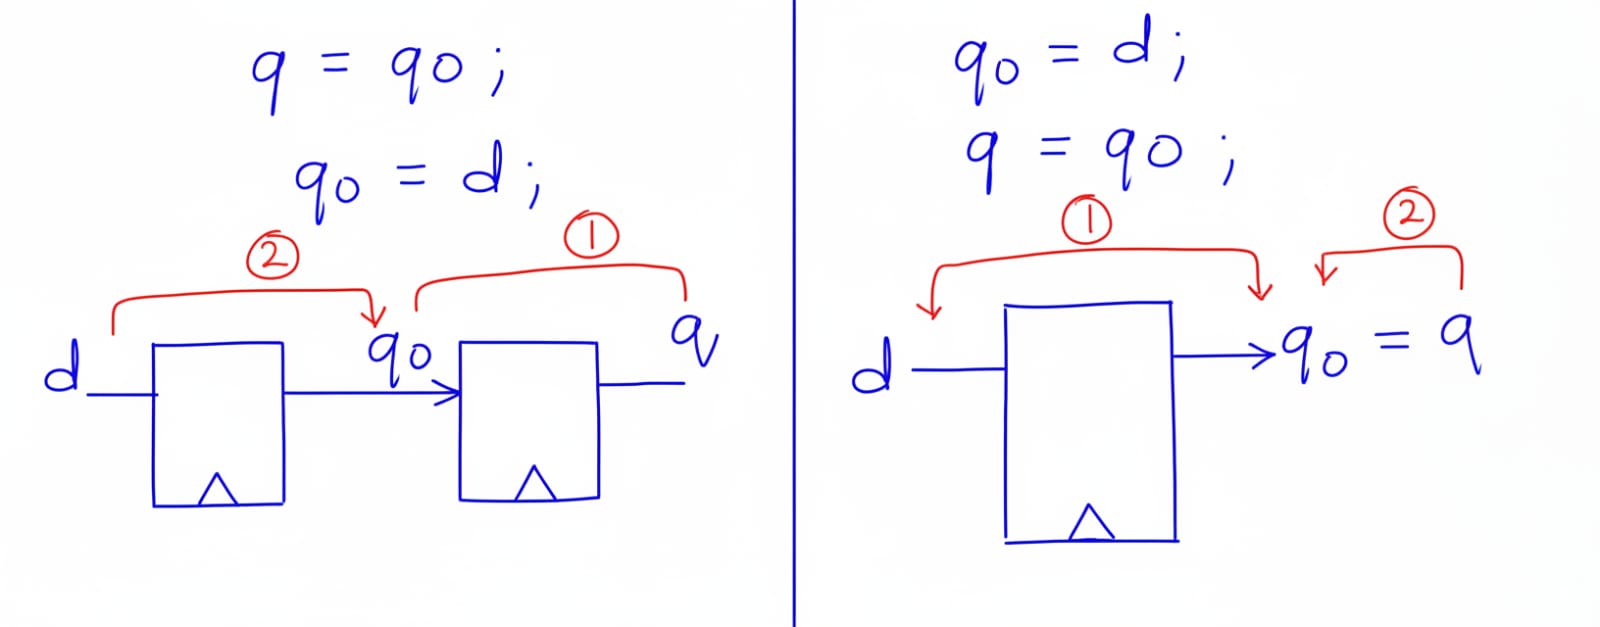 q = q0 ;
q0 = d ;
② ①
d q0 q
q0 = d ;
q = q0 ;
① ②
d q0 = q